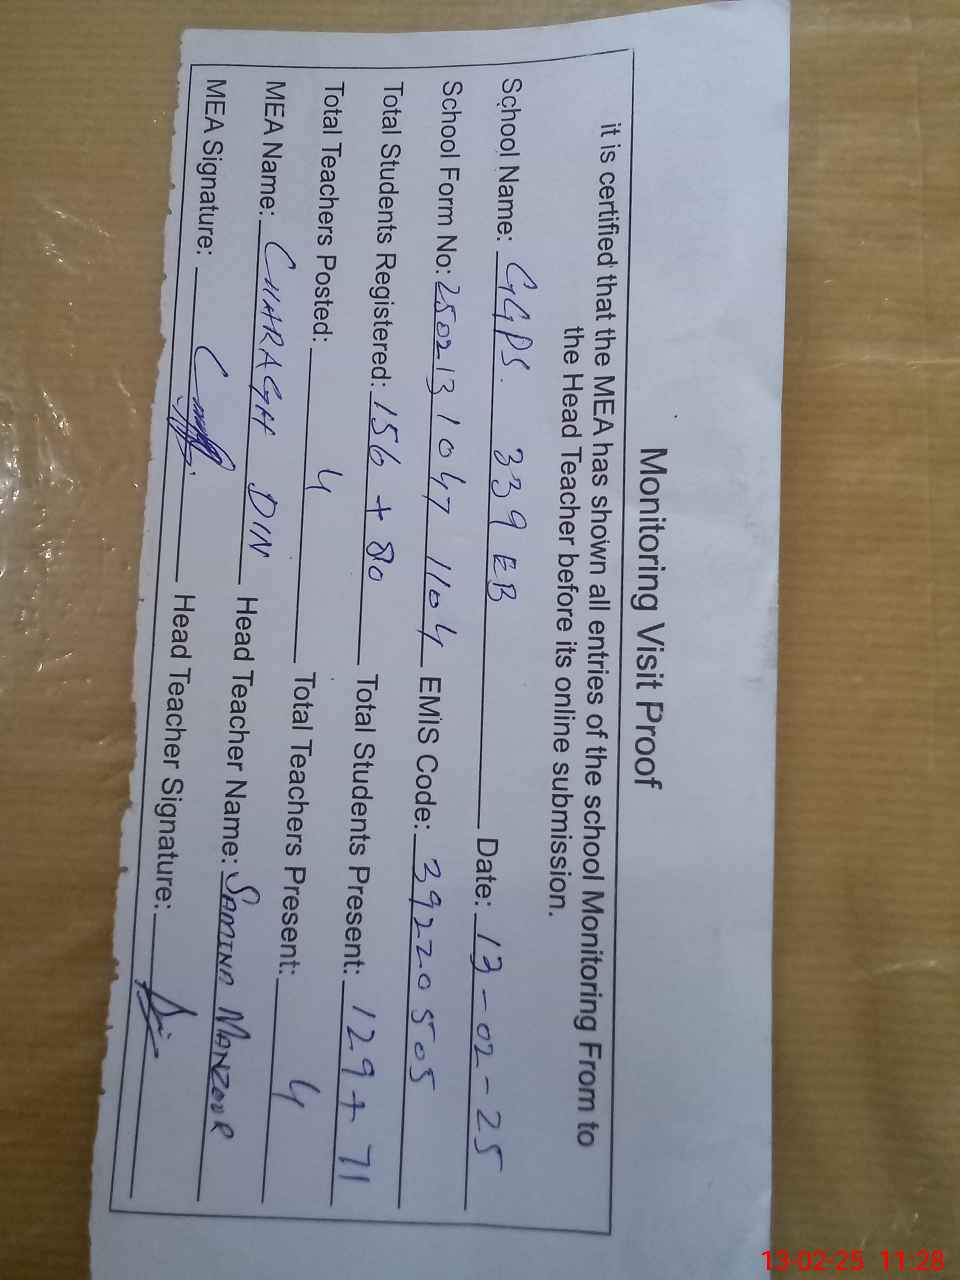 Monitoring Visit Proof
it is certified that the MEA has shown all entries of the school Monitoring From to
the Head Teacher before its online submission.
School Name: GGPS. 339 EB Date: 13-02-25
School Form No: 2502131047 1104 EMIS Code: 39220505
Total Students Registered: 156 + 80 Total Students Present: 129 + 71
Total Teachers Posted: 4 Total Teachers Present: 4
MEA Name: CHARAGH DIN Head Teacher Name: SAMINA MANZOOR
MEA Signature: Head Teacher Signature:
13-02-25 11:28